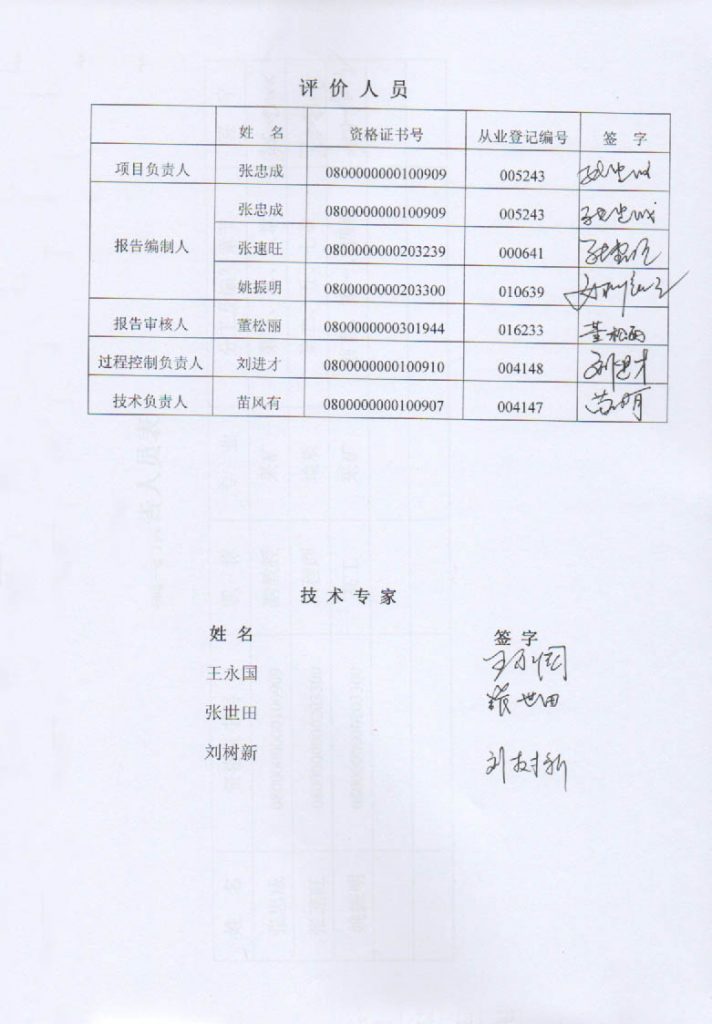 评价人员
姓 名 资格证书号 从业登记编号 签 字
项目负责人 张忠成 0800000000100909 005243 张忠成
报告编制人 张忠成 0800000000100909 005243 张忠成
张速旺 0800000000203239 000641
姚振明 0800000000203300 010639
报告审核人 董松丽 0800000000301944 016233 董松丽
过程控制负责人 刘进才 0800000000100910 004148 刘进才
技术负责人 苗风有 0800000000100907 004147
技术专家
姓 名 签 字
王永国 王永国
张世田 张世田
刘树新 刘树新